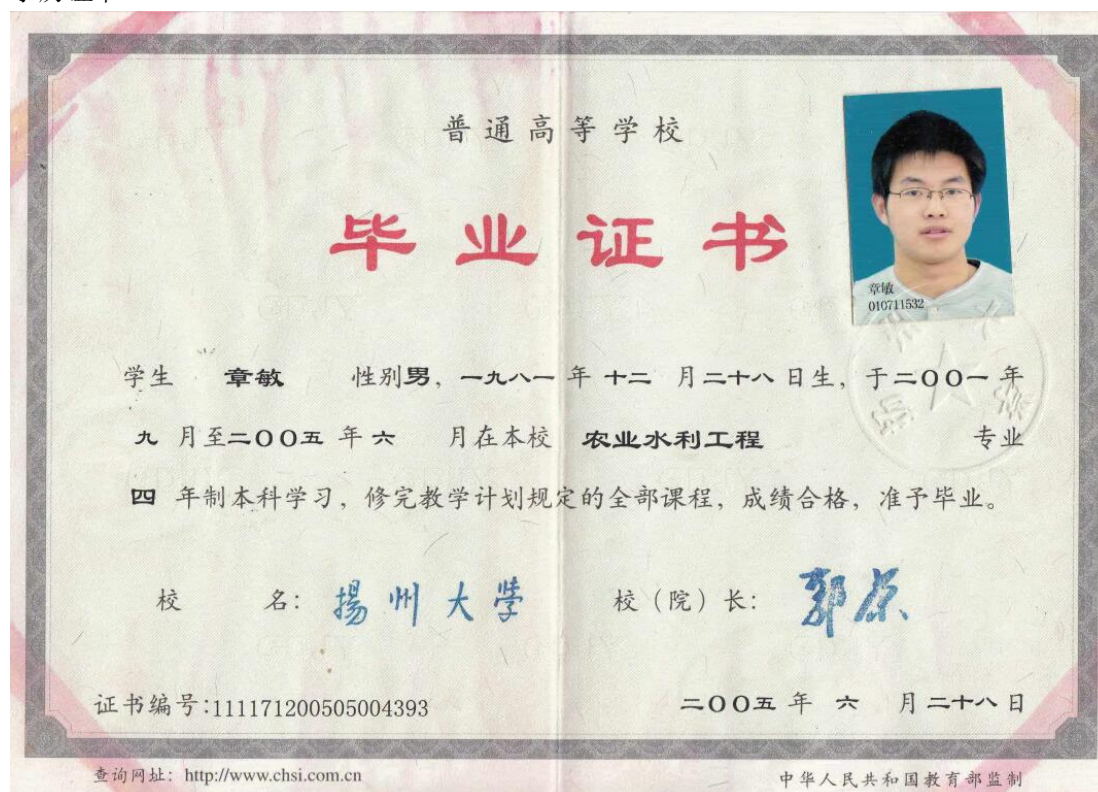 普通高等学校
毕业证书
章敏
010711532
学生 章敏 性别男，一九八一年十二月二十八日生，于二〇〇一年
九月至二〇〇五年六月在本校 农业水利工程 专业
四年制本科学习，修完教学计划规定的全部课程，成绩合格，准予毕业。
校 名：揚州大学 校（院）长：
证书编号:111171200505004393 二〇〇五年 六 月二十八日
查询网址：http://www.chsi.com.cn 中华人民共和国教育部监制